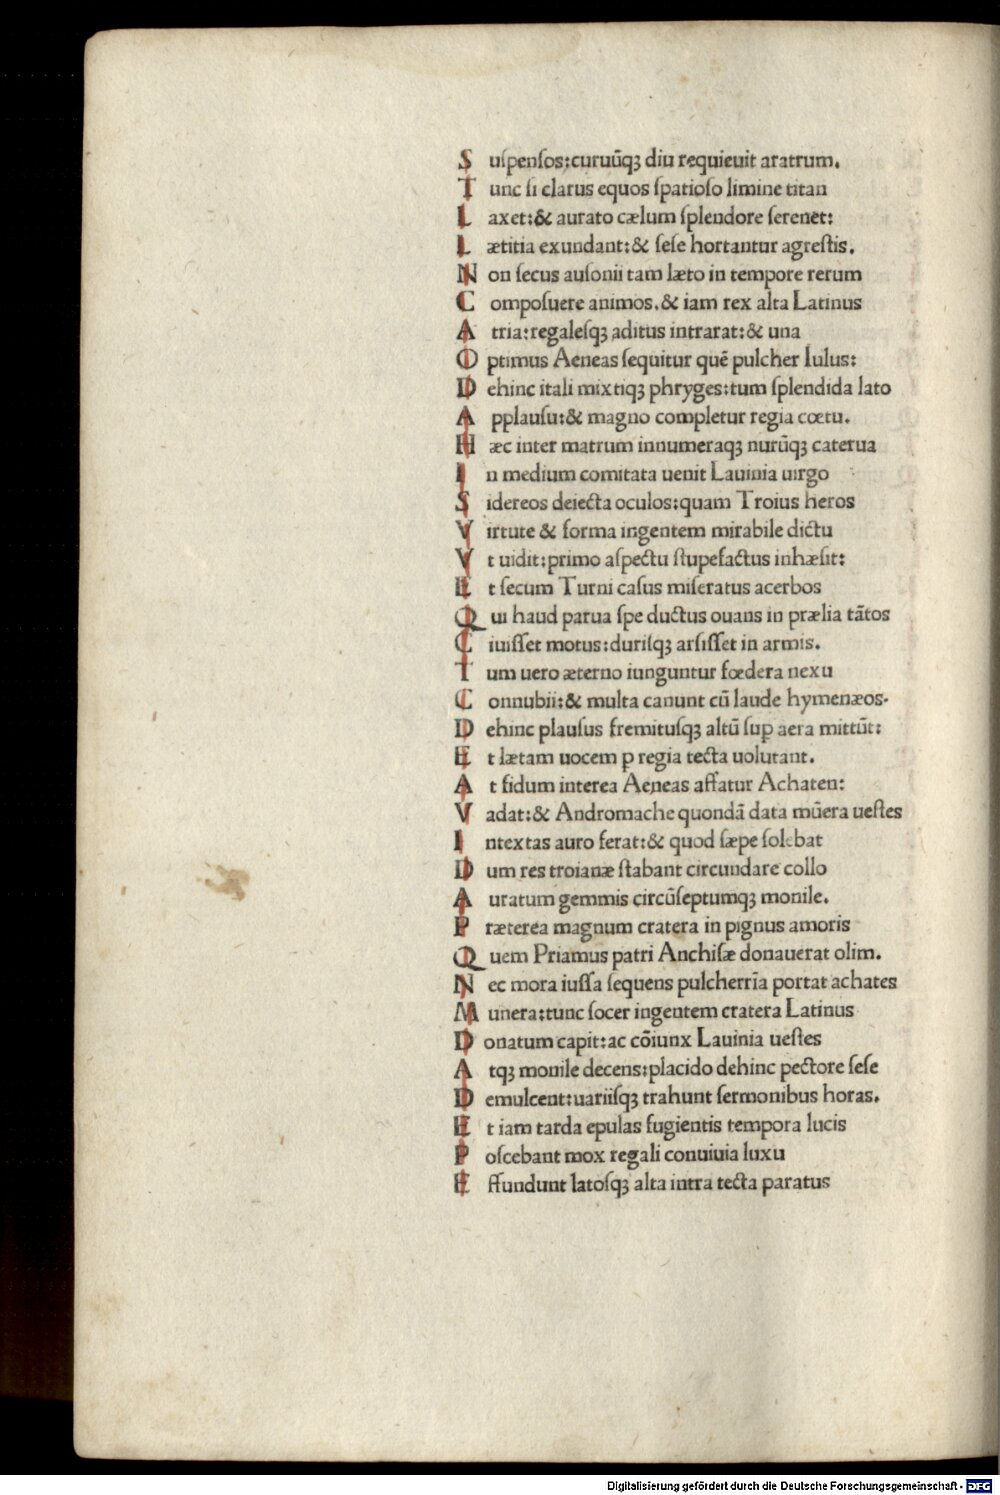 S uſpenſos:curuūqꝫ diu requieuit aratrum.
T unc ſi clarus equos ſpatioſo limine titan
L axet:& aurato cælum ſplendore ſerenet:
L ætitia exundant:& ſeſe hortantur agreſtis.
N on ſecus auſonii tam læto in tempore rerum
C ompoſuere animos.& iam rex alta Latinus
A tria:regaleſqꝫ aditus intrarat:& una
O ptimus Aeneas ſequitur quē pulcher Iulus:
D ehinc itali mixtiqꝫ phryges:tum ſplendida lato
A pplauſu:& magno completur regia cœtu.
H æc inter matrum innumeraqꝫ nurūqꝫ caterua
I n medium comitata uenit Lauinia uirgo
S idereos deiecta oculos:quam Troius heros
V irtute & forma ingentem mirabile dictu
V t uidit:primo aſpectu ſtupefactus inhæſit:
E t ſecum Turni caſus miſeratus acerbos
Q ui haud parua ſpe ductus ouans in prælia tātos
C iuiſſet motus:duriſqꝫ arſiſſet in armis.
T um uero æterno iunguntur fœdera nexu
C onnubii:& multa canunt cū laude hymenæos.
D ehinc plauſus fremituſqꝫ altū ſup aera mittūt:
E t lætam uocem p regia tecta uolutant.
A t fidum interea Aeneas affatur Achaten:
V adat:& Andromache quondā data mūera ueſtes
I ntextas auro ferat:& quod ſæpe ſolebat
D um res troianæ ſtabant circundare collo
A uratum gemmis circūſeptumqꝫ monile.
P ræterea magnum cratera in pignus amoris
Q uem Priamus patri Anchiſæ donauerat olim.
N ec mora iuſſa ſequens pulcherrīa portat achates
M unera:tunc ſocer ingentem cratera Latinus
D onatum capit:ac cōiunx Lauinia ueſtes
A tqꝫ monile decens:placido dehinc pectore ſeſe
D emulcent:uariiſqꝫ trahunt ſermonibus horas.
E t iam tarda epulas fugientis tempora lucis
P oſcebant mox regali conuiuia luxu
E ffundunt latoſqꝫ alta intra tecta paratus
Digitalisierung gefördert durch die Deutsche Forschungsgemeinschaft - DFG